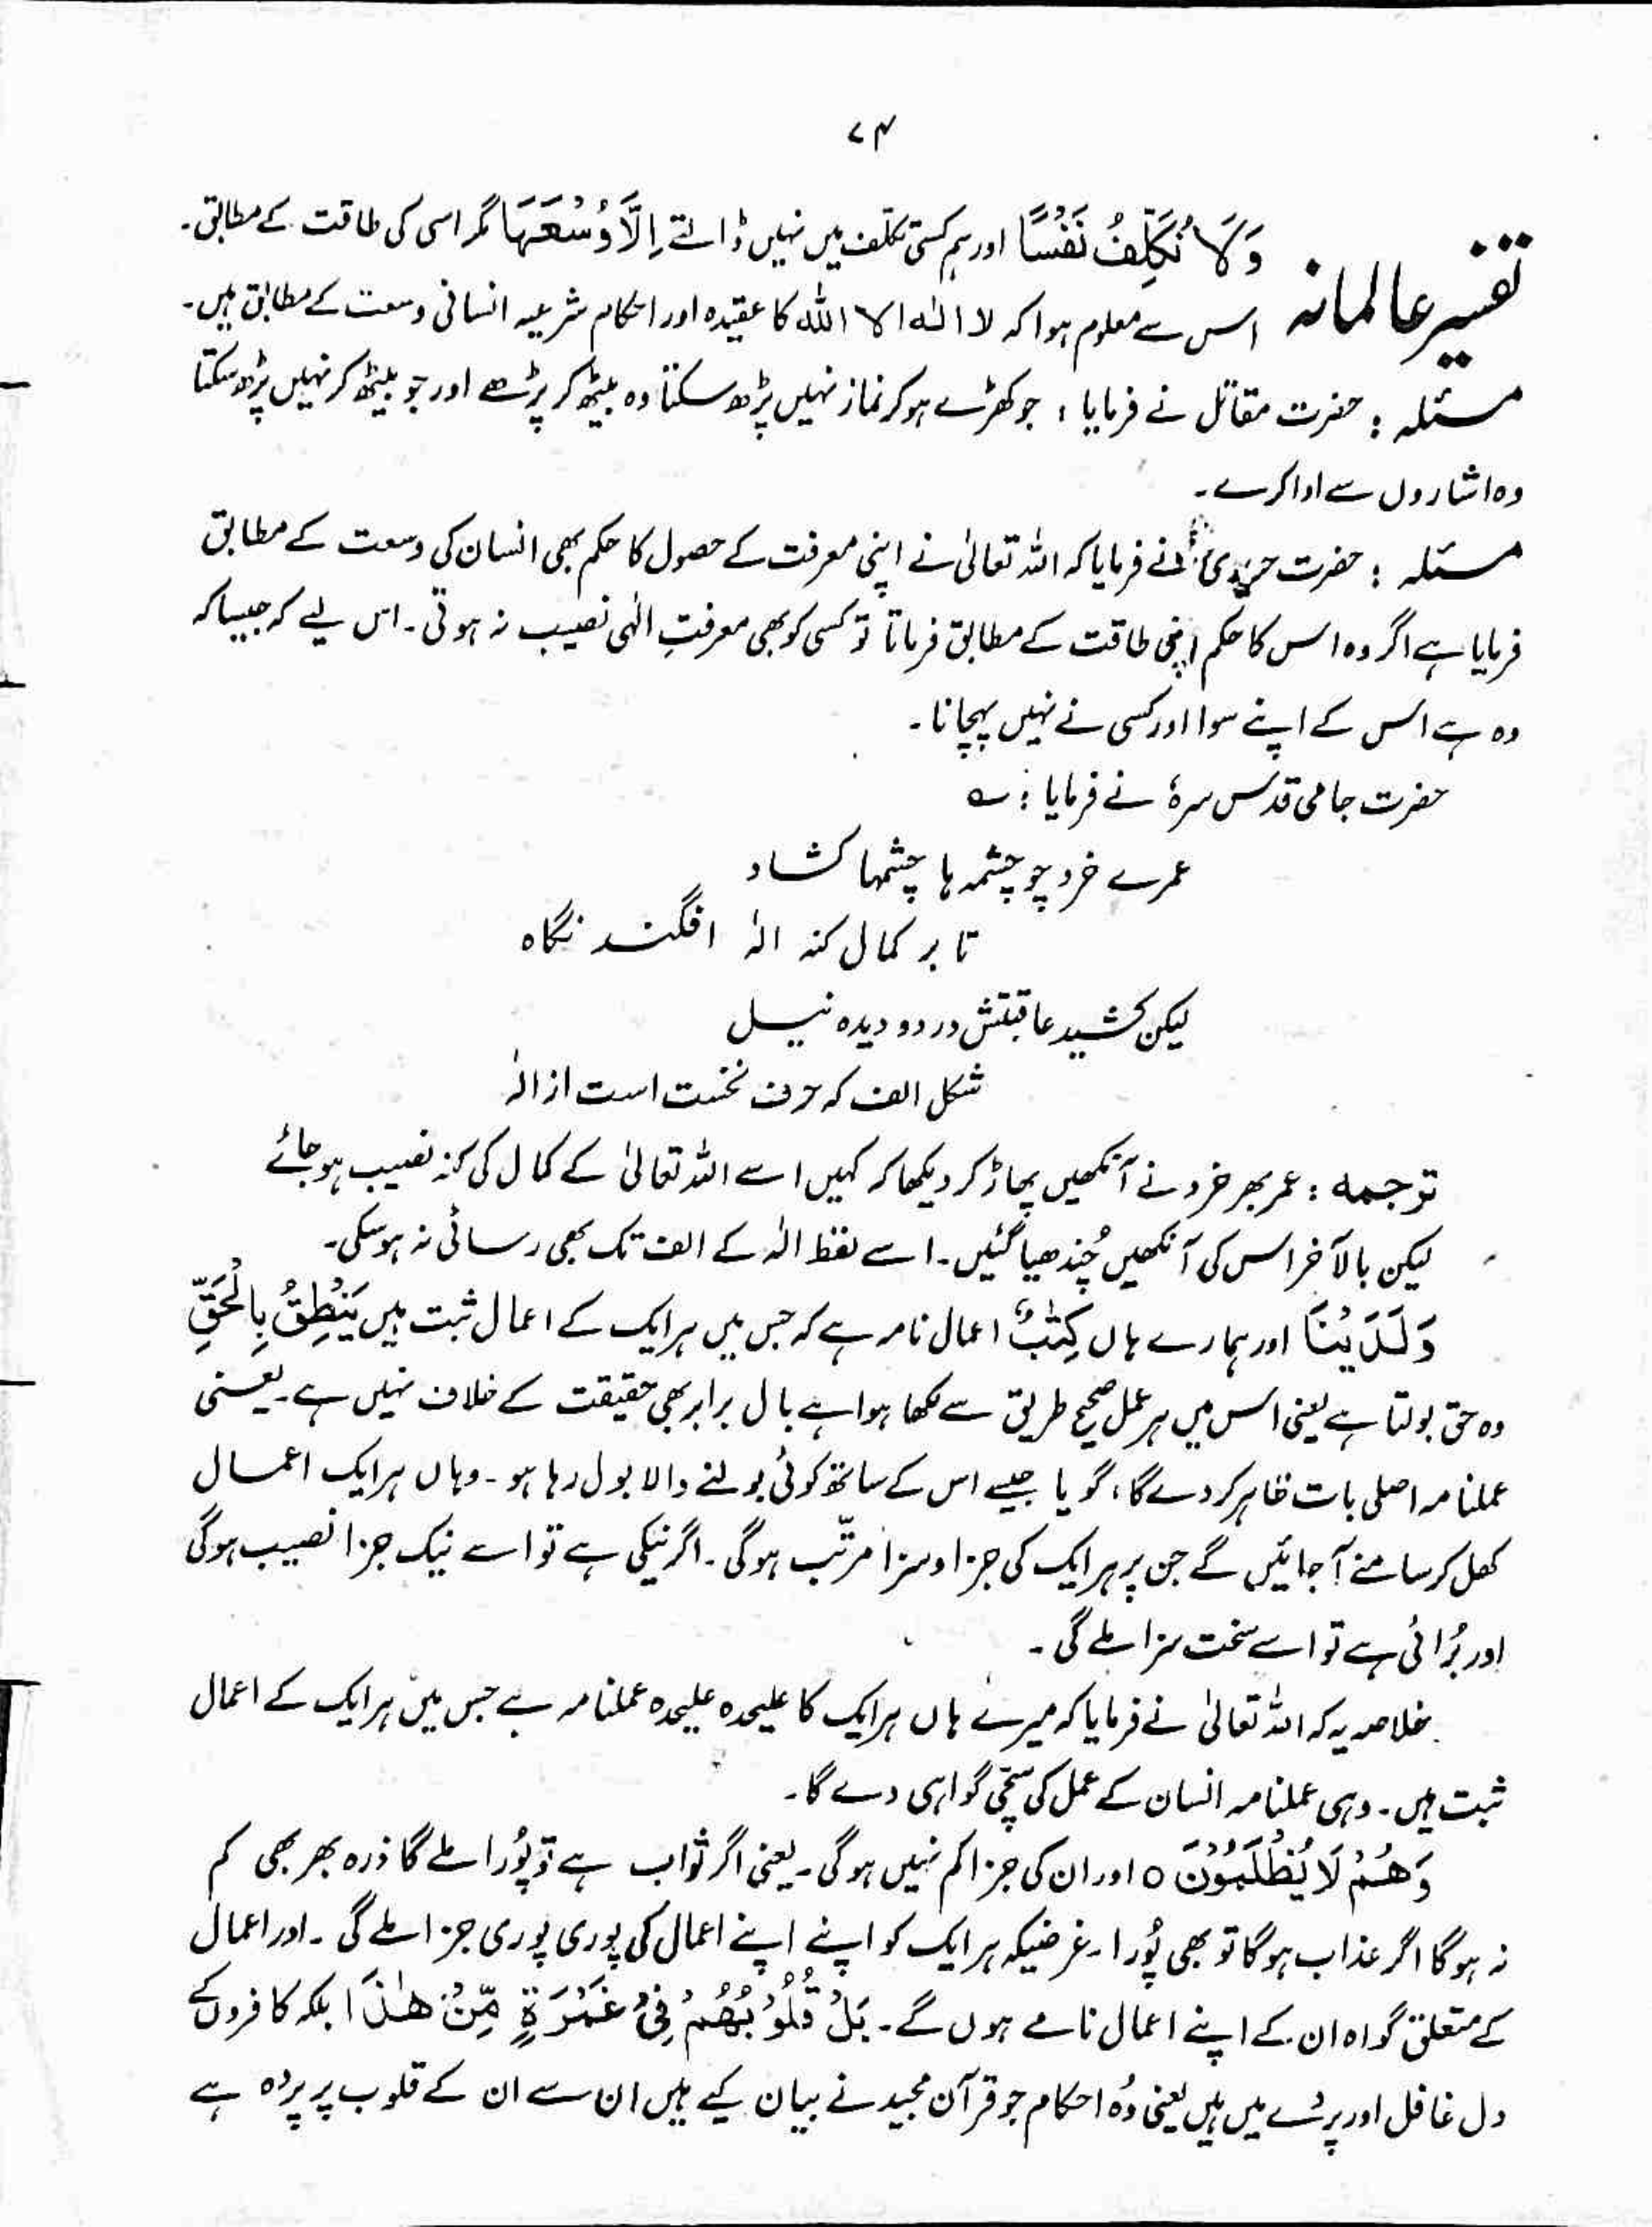 ۷۴
تفسیر عالمانہ
وَلَا نُكَلِّفُ نَفْسًا اور ہم کسی تکلف میں نہیں ڈالتے اِلَّا وُسْعَهَا مگر اسی کی طاقت کے مطابق۔
اس سے معلوم ہوا کہ لا الٰہ الا اللہ کا عقیدہ اور احکام شرعیہ انسانی وسعت کے مطابق ہیں۔
مسئلہ : حضرت مقاتل نے فرمایا : جو کھڑے ہو کر نماز نہیں پڑھ سکتا وہ بیٹھ کر پڑھے اور جو بیٹھ کر نہیں پڑھ سکتا
وہ اشاروں سے ادا کرے۔
مسئلہ : حضرت نے فرمایا کہ اللہ تعالیٰ نے اپنی معرفت کے حصول کا حکم بھی انسان کی وسعت کے مطابق
فرمایا ہے اگر وہ اس کا حکم اپنی طاقت کے مطابق فرماتا تو کسی کو بھی معرفتِ الٰہی نصیب نہ ہوتی۔ اس لیے کہ جیسا کہ
وہ ہے اس کے اپنے سوا اور کسی نے نہیں پہچانا۔
حضرت جامی قدس سرہٗ نے فرمایا : ؎
عمرے خرد چو چشمہ ہا چشمہا کشاد
تا بر کمال کنہ الٰہ افگند نگاہ
لیکن کشید عاقبتش در دو دیدہ نیل
شکل الف کہ حرف نخست است از الٰہ
ترجمہ : عمر بھر خرد نے آنکھیں پھاڑ کر دیکھا کہ کہیں اسے اللہ تعالیٰ کے کمال کی کنہ نصیب ہو جائے
لیکن بالآخر اس کی آنکھیں چُندھیا گئیں۔ اسے لفظ الٰہ کے الف تک بھی رسائی نہ ہو سکی۔
وَلَدَيْنَا اور ہمارے ہاں كِتٰبٌ اعمال نامہ ہے کہ جس میں ہر ایک کے اعمال ثبت ہیں يَنْطِقُ بِالْحَقِّ
وہ حق بولتا ہے یعنی اس میں ہر عمل صحیح طریق سے لکھا ہوا ہے بال برابر بھی حقیقت کے خلاف نہیں ہے۔ یعنی
عملنامہ اصلی بات ظاہر کر دے گا، گویا جیسے اس کے ساتھ کوئی بولنے والا بول رہا ہو۔ وہاں ہر ایک اعمال
کھل کر سامنے آ جائیں گے جن پر ہر ایک کی جزا و سزا مرتّب ہوگی۔ اگر نیکی ہے تو اسے نیک جزا نصیب ہوگی
اور بُرائی ہے تو اسے سخت سزا ملے گی۔
خلاصہ یہ کہ اللہ تعالیٰ نے فرمایا کہ میرے ہاں ہر ایک کا علیحدہ علیحدہ عملنامہ ہے جس میں ہر ایک کے اعمال
ثبت ہیں۔ وہی عملنامہ انسان کے عمل کی سچّی گواہی دے گا۔
وَهُمْ لَا يُظْلَمُوْنَ ○ اور ان کی جزا کم نہیں ہوگی۔ یعنی اگر ثواب ہے تو پُورا ملے گا ذرہ بھر بھی کم
نہ ہوگا اگر عذاب ہوگا تو بھی پُورا۔ غرضیکہ ہر ایک کو اپنے اپنے اعمال کی پوری پوری جزا ملے گی۔ اور اعمال
کے متعلق گواہ ان کے اپنے اعمال نامے ہوں گے۔ بَلْ قُلُوْبُهُمْ فِيْ غَمْرَةٍ مِّنْ هٰذَا بلکہ کافروں کے
دل غافل اور پردے میں ہیں یعنی وُہ احکام جو قرآن مجید نے بیان کیے ہیں ان سے ان کے قلوب پر پردہ ہے